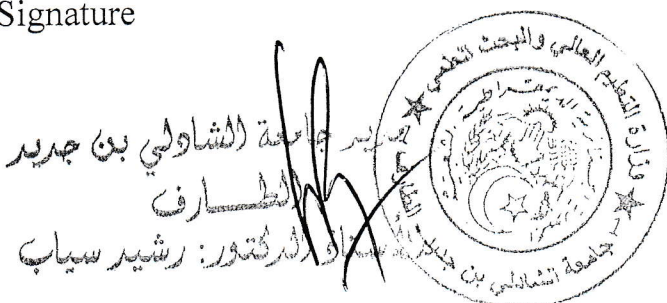 Signature
مدير جامعة الشاذلي بن جديد
الطارف
الأستاذ الدكتور: رشيد سياب
وزارة التعليم العالي والبحث العلمي
جامعة الشاذلي بن جديد الطارف